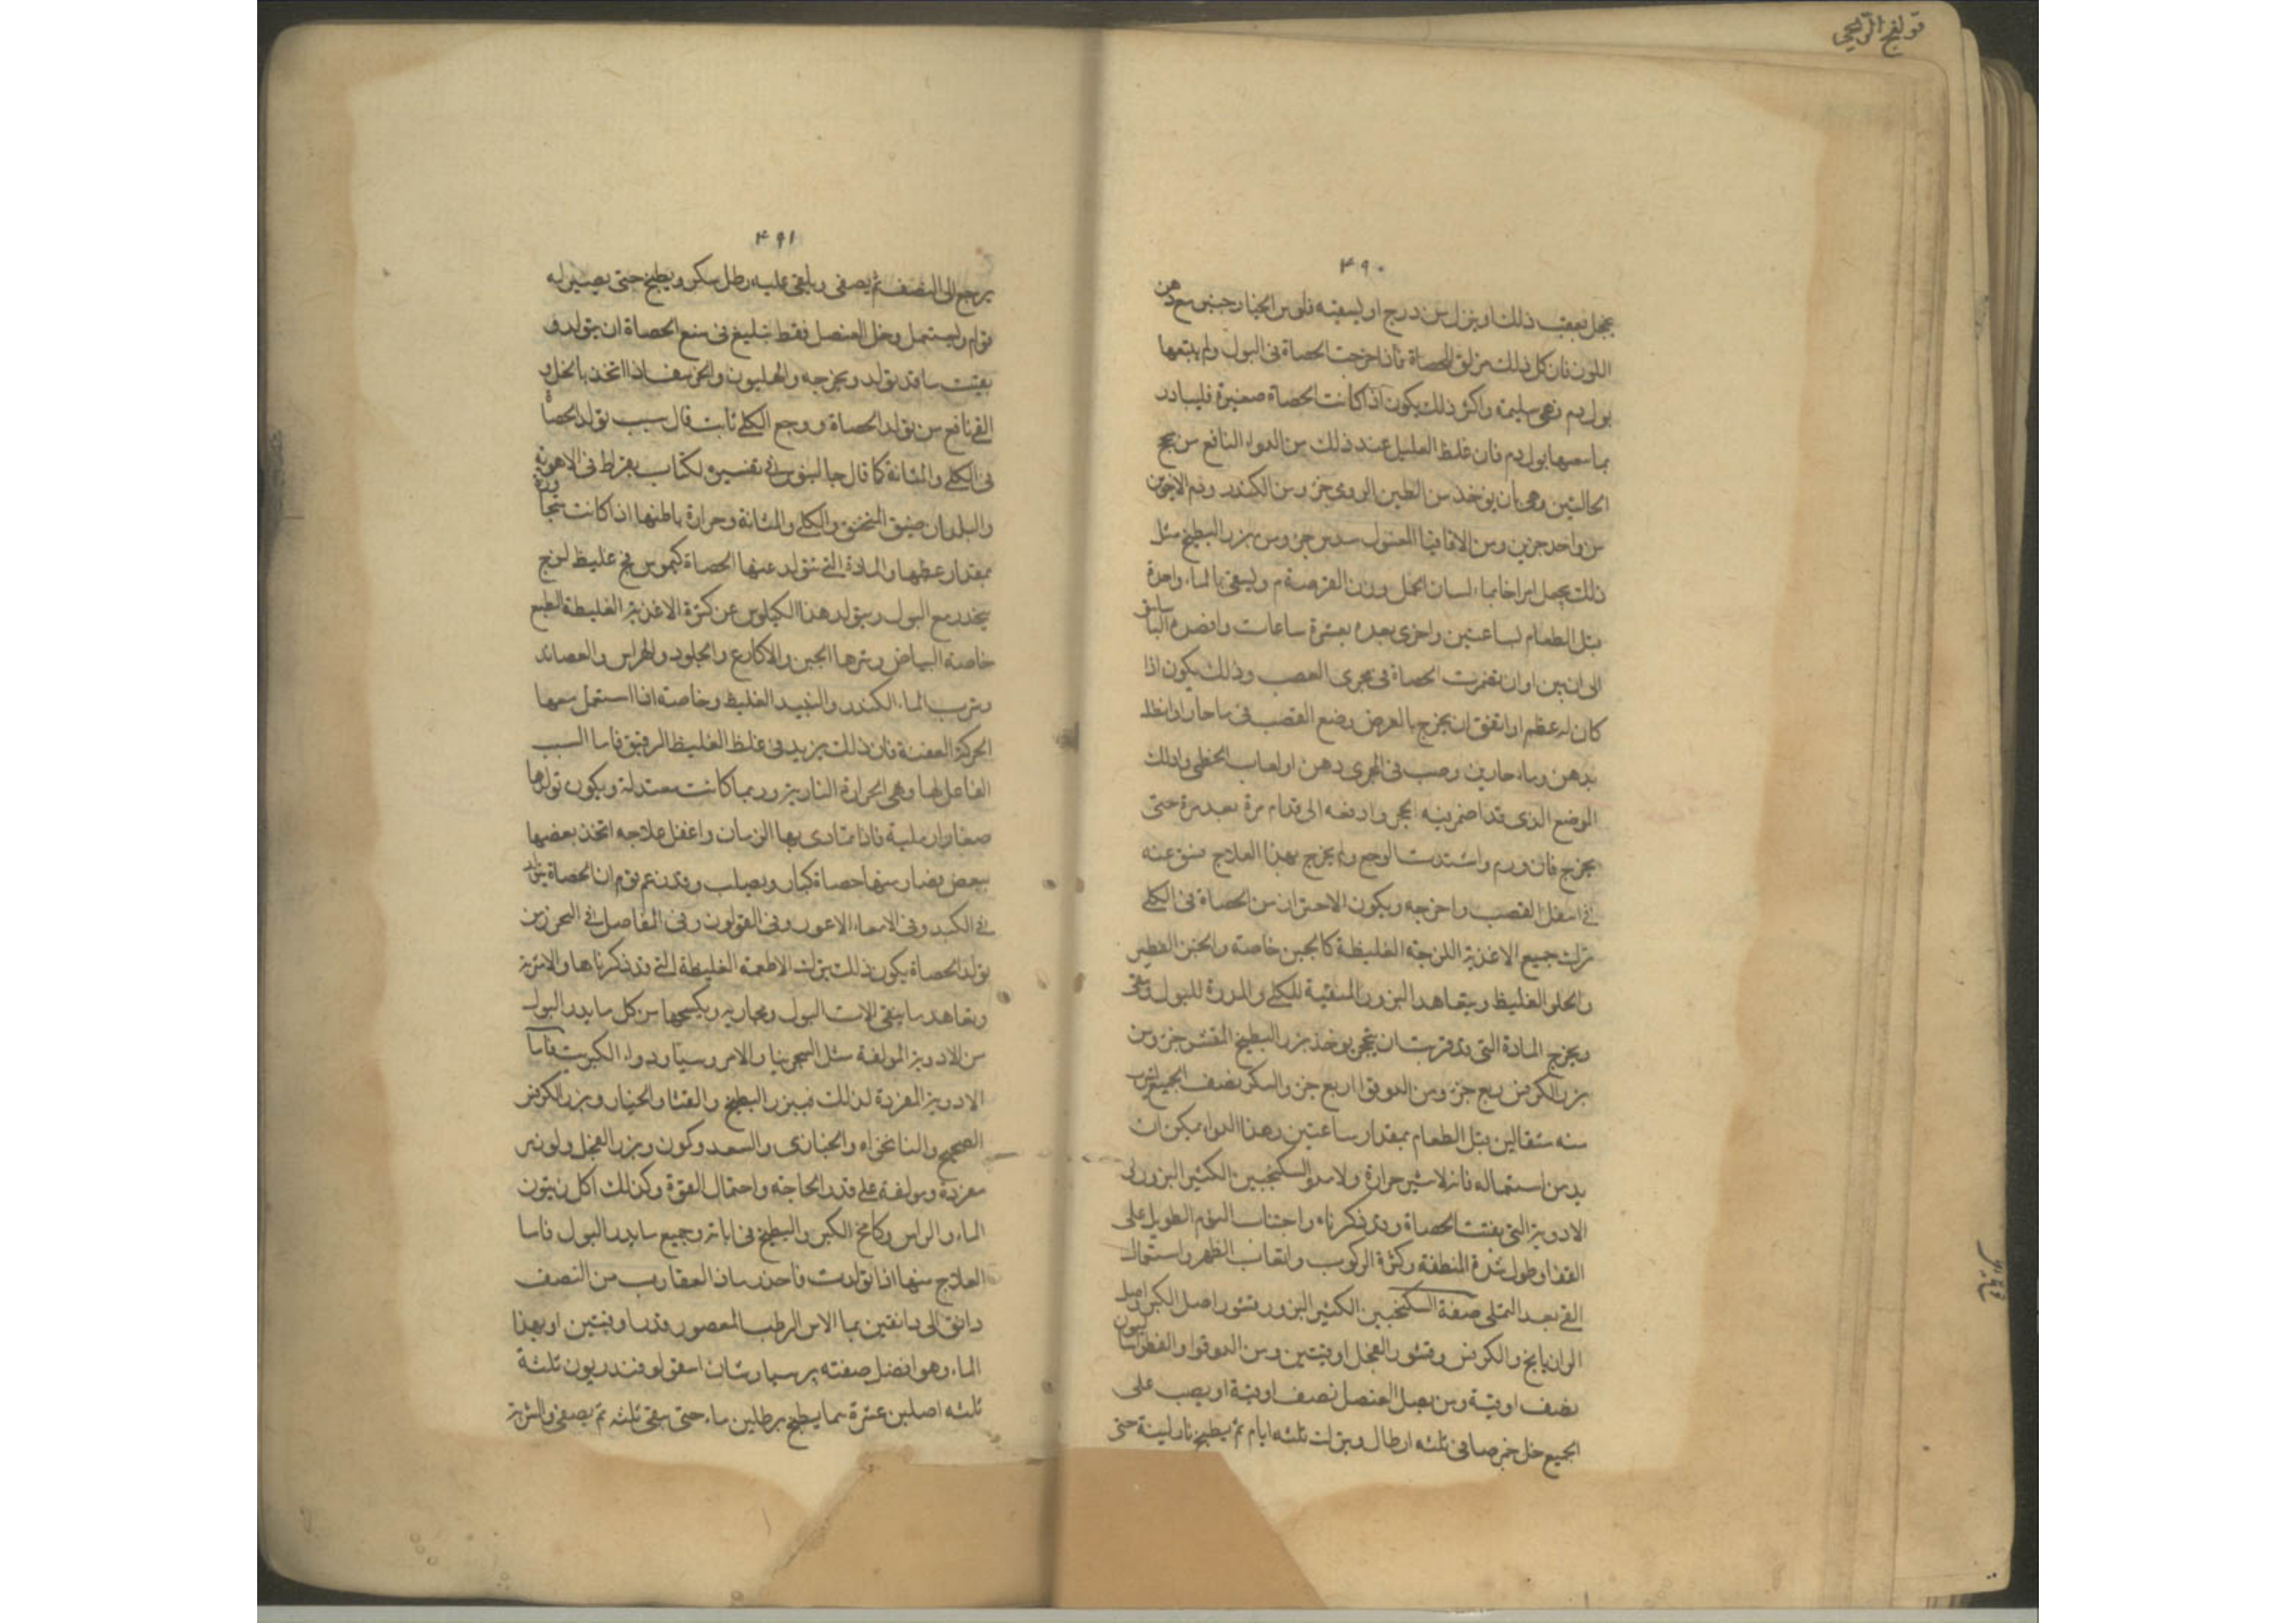 قولنج الريحي
٤٩٠
بعقب ذلك او ينزل من درج او يسقيه فلوس الخيارجنبر مع دهن
اللوز فان كل ذلك يزلق الحصاة فاذا خرجت الحصاة في البول ولم يتبعها
بول دم فهي سليمة واكثر ذلك يكون اذا كانت الحصاة صغيرة فليبادر
بول دم فان غلط العليل عند ذلك من الدواء النافع من
الحالتين وهي ان يوخذ من الطين الرومي جزو من الكندر ودم الاخوين
من واحد جزين ومن الاقاقيا المغسول سدس جزو من بزر البطيخ مثل
ذلك يجعل اقراصا بماء لسان الحمل وزن القرصة م ويسقى بالماء واحدة
قبل الطعام بساعتين واخرى بعده بعشرة ساعات
الحصاة في مجرى القضيب وذلك يكون اذا
كان له عظم او اتفق ان يخرج بالعرض وضع القضيب في ماء حار
بدهن وماء حارين وصب في المجرى دهن او لعاب الخطمي وادلك
الموضع الذي قد الحجر وادفعه الى قدام مرة بعد مرة حتى
يخرج فان ورم واشتدت الوجع ولم يخرج بهذا العلاج شق عنه
في اسفل القضيب واخرجه ويكون الاحتراز من الحصاة في الكلى
ترك جميع الاغذية اللزجة الغليظة كالجبن خاصة والخبز الفطير
والحلو الغليظ ويتعاهد البزور المنقية للكلى والمدرة للبول
ويخرج المادة التي قد قربت ان يتحجر يوخذ بزر البطيخ المقشر جزو من
بزر الكرفس ربع جزو ومن الدوقوا ربع جزو والسكر نصف الجميع
منه مثقالين قبل الطعام بمقدار ساعتين وهذا الدواء يمكن ان
يدمن استعماله فانه لا يثير حرارة السكنجبين الكثير البزور
الادوية التي يفتت الحصاة وقد ذكرناه واجتناب النوم الطويل على
القفا وطول شدة المنطقة وكثرة الركوب واتعاب الظهر واستعمال
القي بعد التملي صفة السكنجبين الكثير البزور قشور اصل الكبر واصل
الرازيانج والكرفس وقشور الفجل اوقيتين ومن الدوقوا
نصف اوقية ومن بصل العنصل نصف اوقية او يصب على
الجميع خل خمر صافي ثلثه ارطال ويترك ثلثه ايام ثم يطبخ بنار لينة حتى
٤٩١
يرجع الى النصف ثم يصفى ويلقى عليه رطل سكر ويطبخ حتى يصير له
قوام وليستعمل وخل العنصل فقط بليغ في منع الحصاة ان يتولد و
يفتت ما قد تولد ويخرجه والهليون والحرشف اذا اتخذ بالخل و
القي نافع من تولد الحصاة ووجع الكلى ثابت قال سبب تولد الحصاة
في الكلى والمثانة كما قال جالينوس في تفسيره لكتاب بقراط في الاهوية
والبلدان ضيق العنق والكلى والمثانة وحرارة باطنها اذا كانت
بمقدار عظمها والمادة التي تتولد عنها الحصاة كيموس فج غليظ لزج
ينحدر مع البول ويتولد هذا الكيلوس عن كثرة الاغذية الغليظة الطبع
خاصة البياض وشرها الجبن والاكارع والجلود والهراس والعصائد
وشرب الماء الكدر والنبيذ الغليظ وخاصة اذا استعمل معها
الحركة العنيفة فان ذلك يزيد في غلظ الغليظ الرقيق فاما السبب
الفاعل لها وهي الحرارة النارية وربما كانت معتدلة ويكون تولدها
صغارا رملية فاذا تمادى بها الزمان واغفل علاجه اتخذ بعضها
ببعض فصار منها حصاة كبار ويصلب وقد زعم قوم ان الحصاة يتولد
في الكبد وفي الامعاء الاعور وفي القولون وفي المفاصل في التحرز من
تولد الحصاة يكون ذلك بترك الاطعمة الغليظة التي قد ذكرناها والاشربة
وتعاهد ما ينقي الات البول ومجاريه ويكسحها من كل ما يدر البول
من الادوية المولفة مثل السجرينا والامروسيا ودواء الكبريت فاما
الادوية المفردة لذلك فبزر البطيخ والقثا والخيار وبزر الكرفس
الصحيح والنانخواه والخبازى والسعد وكمون وبزر الفجل
مفردة ومولفة على قدر الحاجة واحتمال القوة وكذلك اكل زيتون
الماء والراس وكامخ الكبر والبطيخ في ابانه وجميع ما يدر البول فاما
العلاج منها اذا تولدت فاحذر ماد العقارب من النصف
دانق الى دانقين بماء الاس الرطب المعصور قدر اوقيتين او بهذا
الماء وهو افضل صفته برسياوشان اسقولوفندريون ثلثة
ثلثه اصلين عشرة بما يطبخ برطلين ماء حتى يبقى ثلثه ثم يصفى والشربة